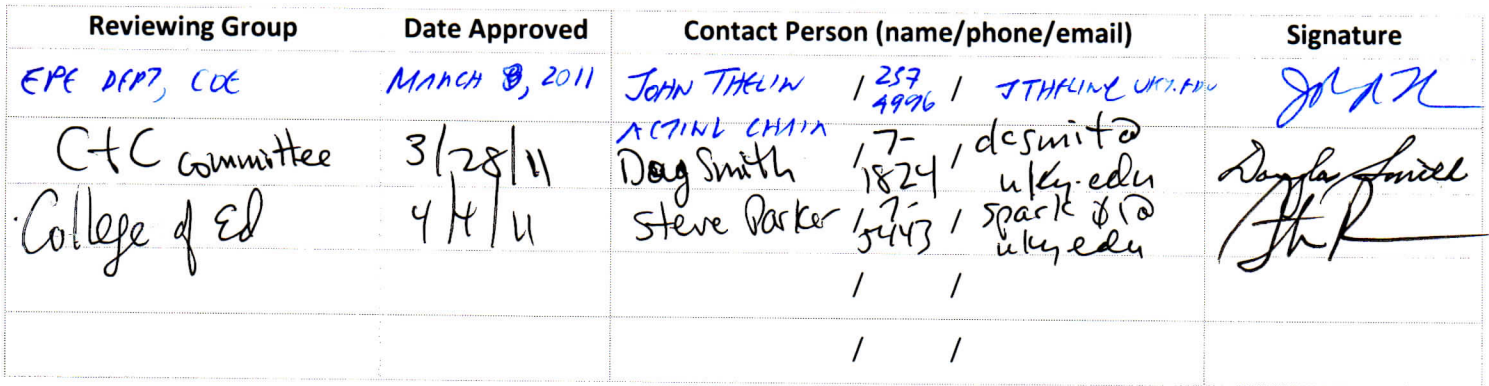 Reviewing Group Date Approved Contact Person (name/phone/email) Signature
EPE DEPT, COE MARCH 8, 2011 JOHN THELIN / 257 4996 / JTHELIN@UKY.EDU
ACTING CHAIR
C+C committee 3/28/11 Doug Smith / 7-1824 / dcsmit@uky.edu Douglas Smith
College of Ed 4/4/11 Steve Parker / 7-5443 / spark@uky.edu
/ /
/ /